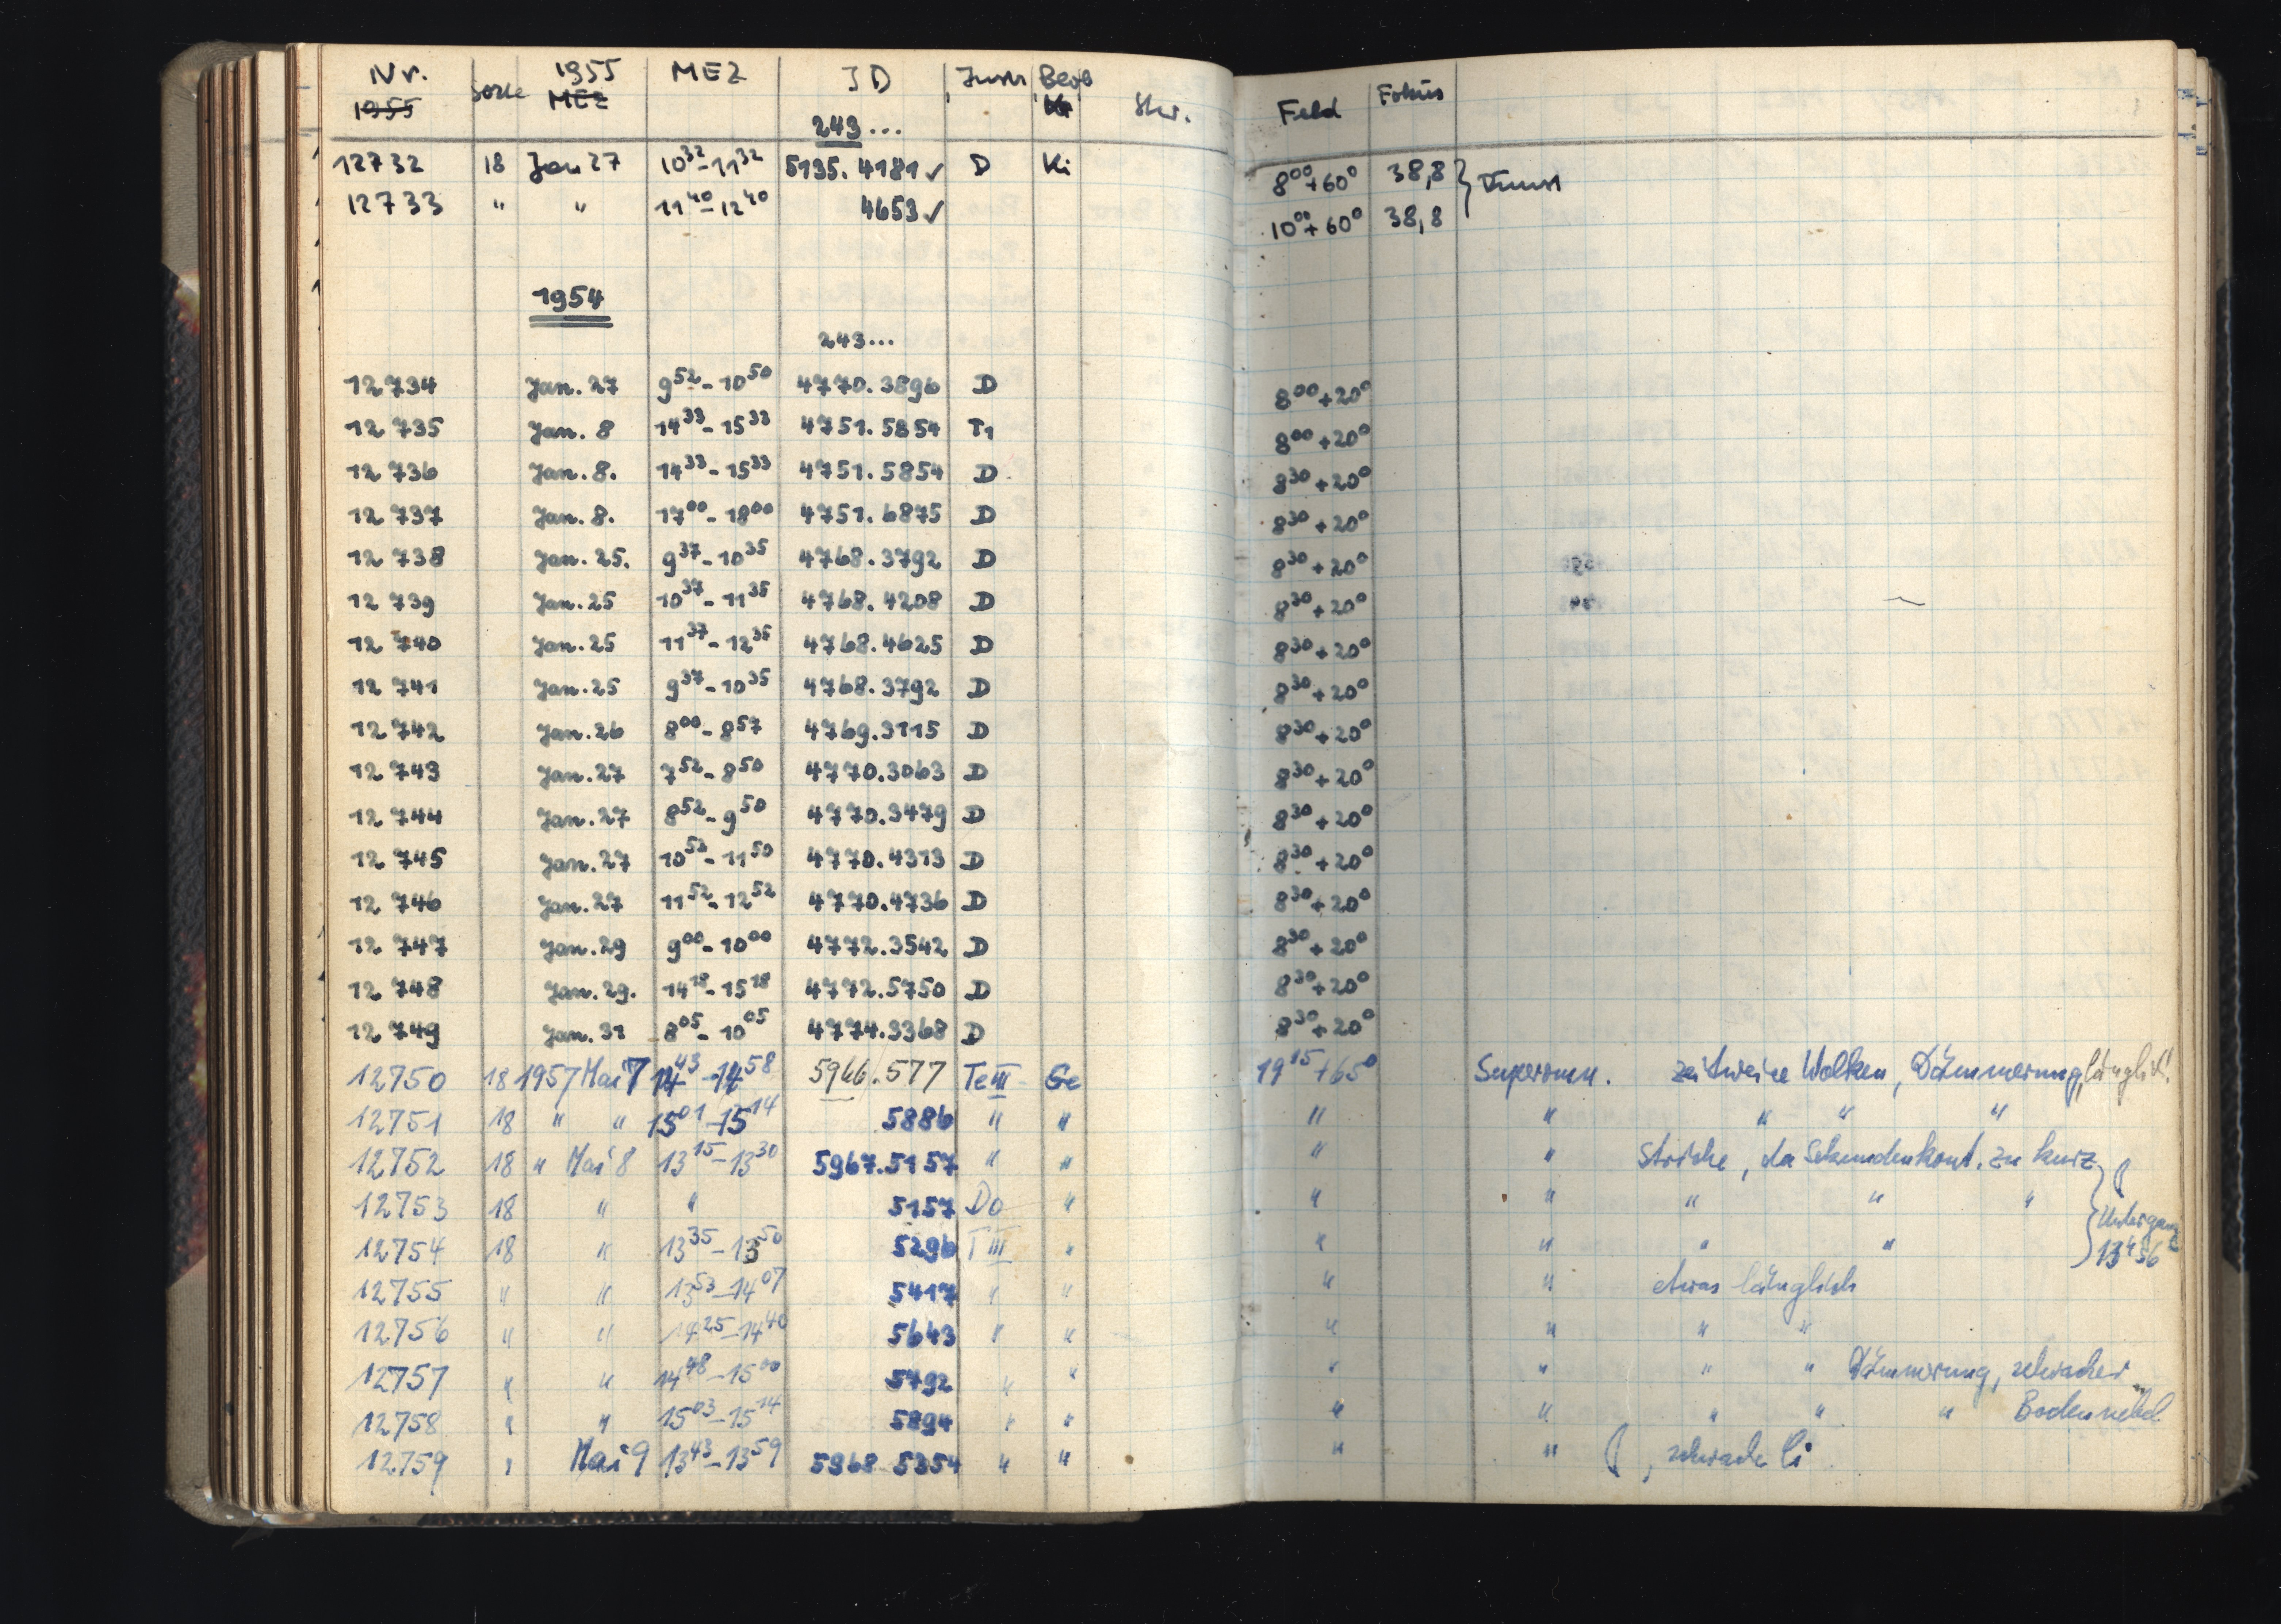 Nr. Sorte 1955 MEZ JD Instr Beob Str. Feld Fokus
1955 MEZ Ki
243...
12732 18 Jan 27 10³²-11³² 5135.4181✓ D Ki 8⁰⁰+60° 38,8
12733 " " 11⁴⁰-12⁴⁰ 4653✓ 10⁰⁰+60° 38,8
1954
243...
12734 Jan. 27 9⁵²-10⁵⁰ 4770.3896 D 8⁰⁰+20°
12735 Jan. 8 14³³-15³³ 4751.5854 T1 8⁰⁰+20°
12736 Jan. 8. 14³³-15³³ 4751.5854 D 8³⁰+20°
12737 Jan. 8. 17⁰⁰-18⁰⁰ 4751.6875 D 8³⁰+20°
12738 Jan. 25. 9³⁷-10³⁵ 4768.3792 D 8³⁰+20°
12739 Jan. 25 10³⁷-11³⁵ 4768.4208 D 8³⁰+20°
12740 Jan. 25 11³⁷-12³⁵ 4768.4625 D 8³⁰+20°
12741 Jan. 25 9³⁷-10³⁵ 4768.3792 D 8³⁰+20°
12742 Jan. 26 8⁰⁰-8⁵⁷ 4769.3115 D 8³⁰+20°
12743 Jan. 27 7⁵²-8⁵⁰ 4770.3063 D 8³⁰+20°
12744 Jan. 27 8⁵²-9⁵⁰ 4770.3479 D 8³⁰+20°
12745 Jan. 27 10⁵²-11⁵⁰ 4770.4313 D 8³⁰+20°
12746 Jan. 27 11⁵²-12⁵² 4770.4736 D 8³⁰+20°
12747 Jan. 29 9⁰⁰-10⁰⁰ 4772.3542 D 8³⁰+20°
12748 Jan. 29. 14¹⁸-15¹⁸ 4772.5750 D 8³⁰+20°
12749 Jan. 31 8⁰⁵-10⁰⁵ 4774.3368 D 8³⁰+20°
12750 18 1957 Mai 7 14⁴³-14⁵⁸ 5966.577 Te III Ge 19¹⁵+65° Superomn. zeitweise Wolken, Dämmerung, länglich!
12751 18 " " 15⁰¹-15¹⁴ 5886 " " " " " " "
12752 18 " Mai 8 13¹⁵-13³⁰ 5967.5157 " " " " Striche, da Sekundenkont. zu kurz
12753 18 " " 5157 Do " " " " " "
12754 18 " 13³⁵-13⁵⁰ 5296 T III " " " " " Untergang 13ʰ56
12755 " " 13⁵³-14⁰⁷ 5417 " " " " etwas länglich
12756 " " 14²⁵-14⁴⁰ 5643 " " " " " "
12757 " " 14⁴⁸-15⁰⁰ 5792 " " " " " " Dämmerung, schwacher
12758 " " 15⁰³-15¹⁴ 5894 " " " " " " " Bodennebel
12759 " Mai 9 13⁴³-13⁵⁹ 5968 5354 " " " " ☾, schwache Ci